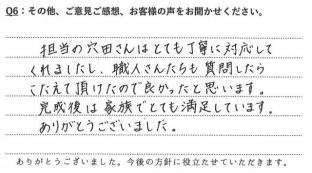 Q6：その他、ご意見ご感想、お客様の声をお聞かせください。
担当の穴田さんはとても丁寧に対応して
くれましたし、職人さんたちも質問したら
こたえて頂けたので良かったと思います。
完成後は家族でとても満足しています。
ありがとうございました。
ありがとうございました。今後の方針に役立たせていただきます。